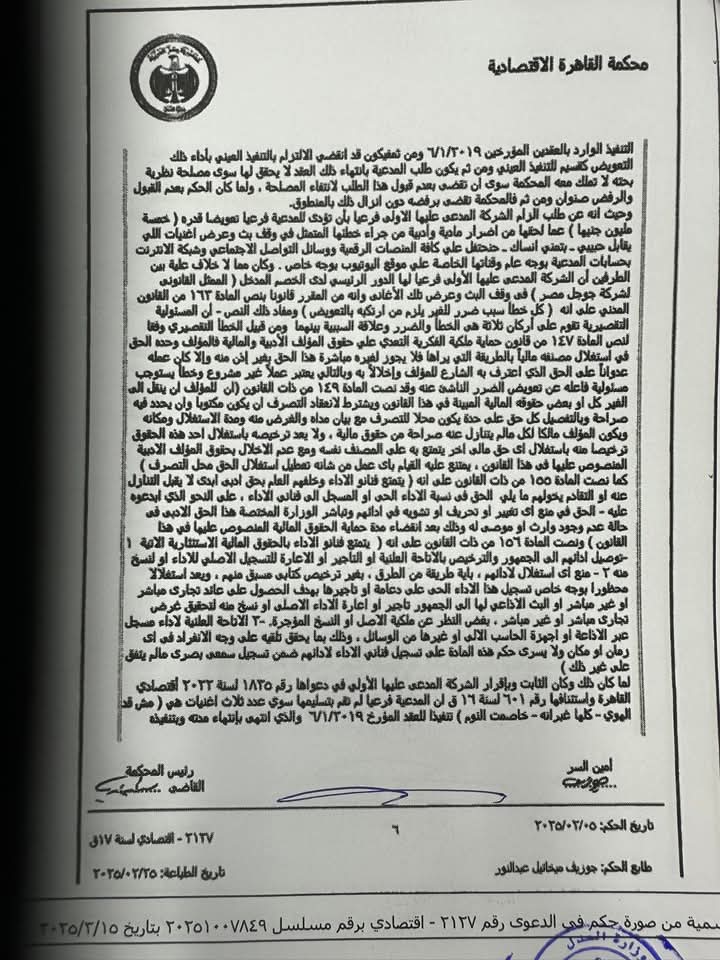 محكمة القاهرة الاقتصادية
التنفيذ الوارد بالعقدين المؤرخين ٦/١/٢٠١٩ ومن ثم فيكون قد انقضي الالتزام بالتنفيذ العيني بأداء ذلك
التعويض كقسيم للتنفيذ العيني ومن ثم يكون طلب المدعية بانتهاء ذلك العقد لا يحقق لها سوى مصلحة نظرية
بحته لا تملك معه المحكمة سوى ان تقضى بعدم قبول هذا الطلب لانتفاء المصلحة ، ولما كان الحكم بعدم القبول
والرفض صنوان ومن ثم فالمحكمة تقضى برفضه دون انزال ذلك بالمنطوق.
وحيث انه عن طلب الزام الشركة المدعى عليها الاولى فرعيا بأن تؤدى للمدعية فرعيا تعويضا قدره ( خمسة
مليون جنيها ) عما لحقها من اضرار مادية وأدبية من جراء خطئها المتمثل في وقف بث وعرض اغنيات اللي
يقابل حبيبي - بتمني انساك - هنحتفل علي كافة المنصات الرقمية ووسائل التواصل الاجتماعي وشبكة الانترنت
بحسابات المدعية بوجه عام وقناتها الخاصة علي موقع اليوتيوب بوجه خاص . وكان مما لا خلاف علية بين
الطرفين أن الشركة المدعى عليها الأولى فرعيا لها الدور الرئيسي لدى الخصم المدخل ( الممثل القانونى
لشركة جوجل مصر ) فى وقف البث وعرض تلك الأغانى وانه من المقرر قانونا بنص المادة ١٦٣ من القانون
المدنى على انه ( كل خطأ سبب ضرر للغير يلزم من ارتكبه بالتعويض ) ومفاد ذلك النص - أن المسئولية
التقصيرية تقوم على أركان ثلاثة هي الخطأ والضرر وعلاقة السببية بينهما ومن قبيل الخطأ التقصيري وفقا
لنص المادة ١٤٧ من قانون حماية ملكية الفكرية التعدي علي حقوق المؤلف الأدبية والمالية فالمؤلف وحده الحق
في استغلال مصنفه مالياً بالطريقة التي يراها فلا يجوز لغيره مباشرة هذا الحق بغير إذن منه وإلا كان عمله
عدواناً على الحق الذي اعترف به الشارع للمؤلف وإخلالاً به وبالتالي يعتبر عملاً غير مشروع وخطأ يستوجب
مسئولية فاعله عن تعويض الضرر الناشئ عنه وقد نصت المادة ١٤٩ من ذات القانون (ان للمؤلف ان ينقل الى
الغير كل او بعض حقوقه المالية المبينة في هذا القانون ويشترط لانعقاد التصرف ان يكون مكتوبا وان يحدد فيه
صراحة وبالتفصيل كل حق على حدة يكون محلا للتصرف مع بيان مداه والغرض منه ومدة الاستغلال ومكانه
ويكون المؤلف مالكا لكل مالم يتنازل عنه صراحة من حقوق مالية ، ولا يعد ترخيصه باستغلال احد هذه الحقوق
ترخيصا منه باستغلال اى حق مالى اخر يتمتع به على المصنف نفسه ومع عدم الاخلال بحقوق المؤلف الادبية
المنصوص عليها في هذا القانون ، يمتنع عليه القيام باى عمل من شانه تعطيل استغلال الحق محل التصرف )
كما نصت المادة ١٥٥ من ذات القانون على انه ( يتمتع فنانو الاداء وخلفهم العام بحق ادبى ابدى لا يقبل التنازل
عنه او التقادم يخولهم ما يلي الحق فى نسبة الاداء الحى او المسجل الى فنانى الاداء ، على النحو الذي ابدعوه
عليه - الحق في منع اى تغيير او تحريف او تشويه في ادائهم وتباشر الوزارة المختصة هذا الحق الادبى فى
حالة عدم وجود وارث او موصى له وذلك بعد انقضاء مدة حماية الحقوق المالية المنصوص عليها في هذا
القانون ) ونصت المادة ١٥٦ من ذات القانون على انه ( يتمتع فنانو الاداء بالحقوق المالية الاستئثارية الاتية ١
-توصيل ادائهم الى الجمهور والترخيص بالاتاحة العلنية او التاجير او الاعارة للتسجيل الاصلي للاداء او لنسخ
منه ٢ - منع اى استغلال لادائهم ، باية طريقة من الطرق ، بغير ترخيص كتابى مسبق منهم ، ويعد استغلالا
محظورا بوجه خاص تسجيل هذا الاداء الحى على دعامة او تاجيرها بهدف الحصول على عائد تجارى مباشر
او غير مباشر او البث الاذاعي لها الى الجمهور تاجير او اعارة الاداء الاصلى او نسخ منه لتحقيق غرض
تجارى مباشر او غير مباشر ، بغض النظر عن ملكية الاصل او النسخ المؤجرة. -٣ الاتاحة العلنية لاداء مسجل
عبر الاذاعة او اجهزة الحاسب الالى او غيرها من الوسائل ، وذلك بما يحقق تلقيه على وجه الانفراد فى اى
زمان او مكان ولا يسرى حكم هذه المادة على تسجيل فناني الاداء لادائهم ضمن تسجيل سمعى بصرى مالم يتفق
على غير ذلك )
لما كان ذلك وكان الثابت وبإقرار الشركة المدعى عليها الأولى في دعواها رقم ١٨٣٥ لسنة ٢٠٢٢ أقتصادي
القاهرة واستئنافها رقم ٦٠١ لسنة ١٦ ق ان المدعية فرعيا لم تقم بتسليمها سوي عدد ثلاث اغنيات هي ( مش قد
الهوي - كلها غيرانه - خاصمت النوم ) تنفيذا للعقد المؤرخ ٦/١/٢٠١٩ والذي انتهى بإنتهاء مدته وبتنفيذه
أمين السر
رئيس المحكمة
القاضى
تاريخ الحكم: ٢٠٢٥/٠٢/٠٥
٦
٢١٢٧ - اقتصادي لسنة ١٧ق
طابع الحكم: جوزيف ميخائيل عبدالنور
تاريخ الطباعة: ٢٠٢٥/٠٢/٢٥
سمية من صورة حكم في الدعوى رقم ٢١٢٧ - اقتصادي برقم مسلسل ٢٠٢٥١٠٠٧٨٤٩ بتاريخ ٢٠٢٥/٣/١٥
وزارة العدل